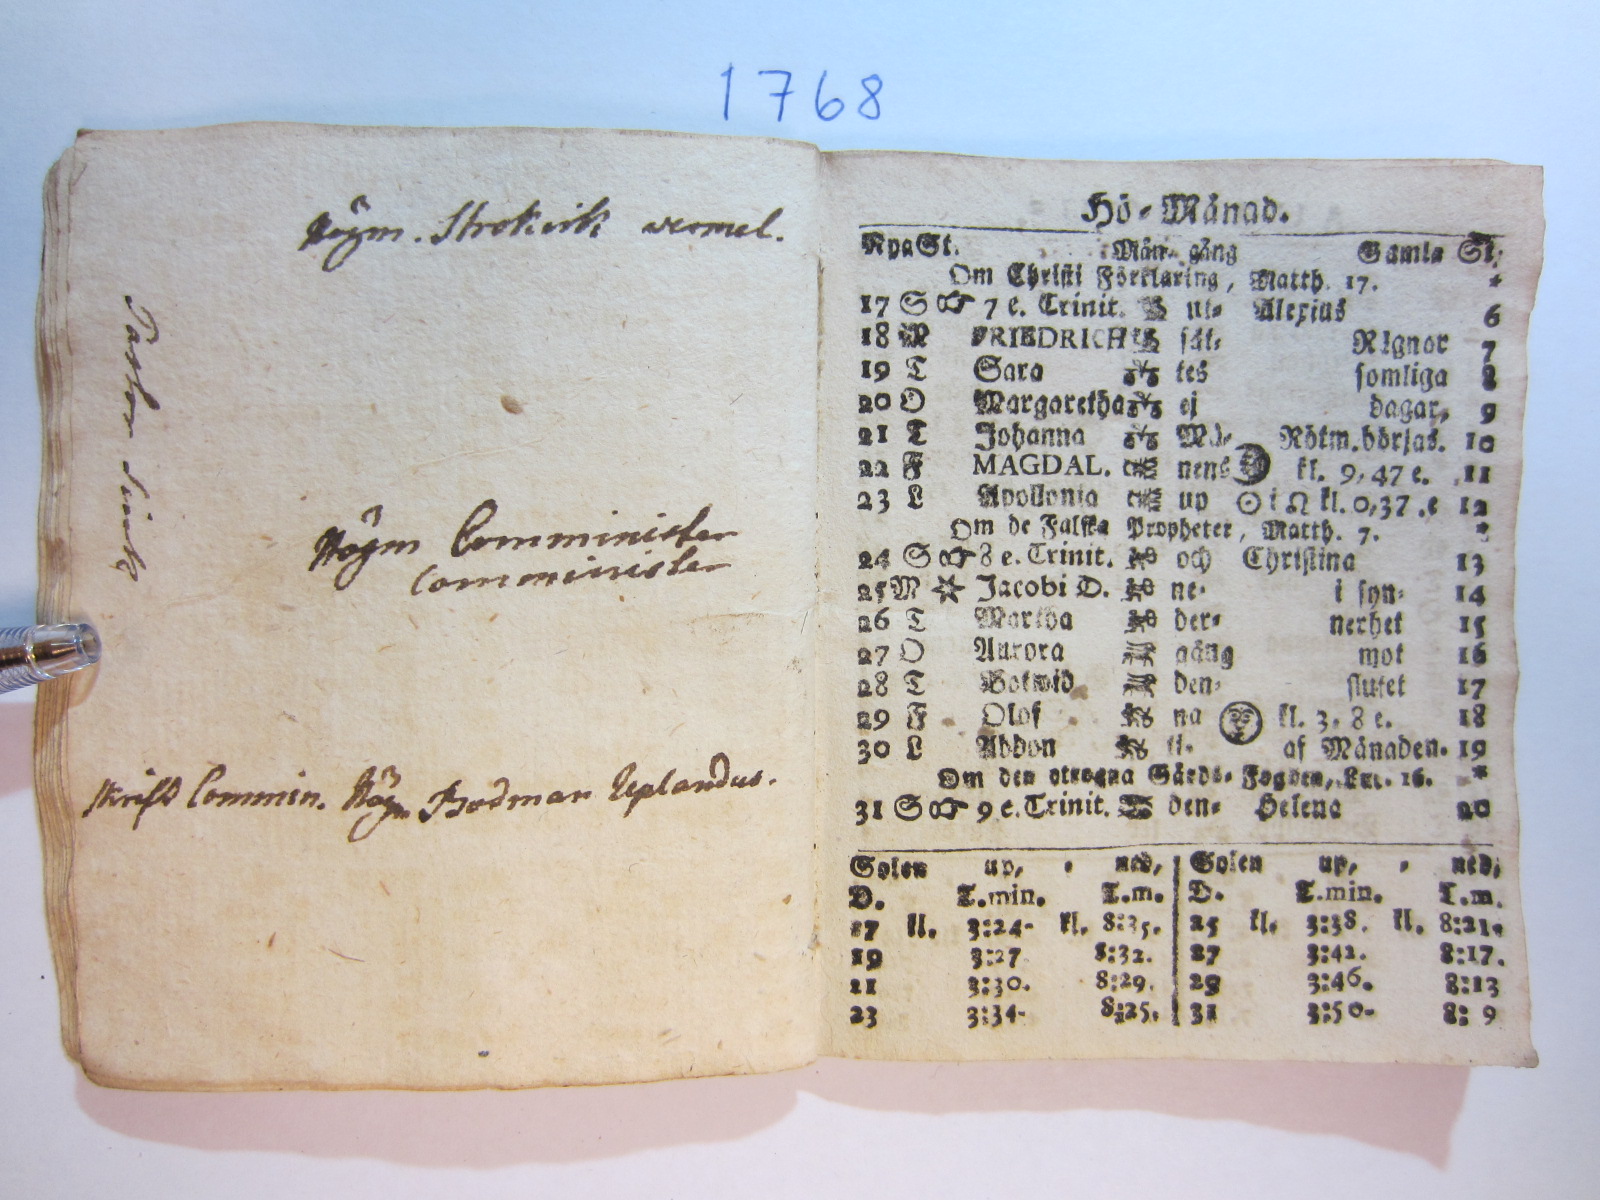 1768
Högm. Strokirk vermel.
Pastor
Högm Comminister
Comminister
skrift Commin. Högm Bodman Uplandus.
Hö-Månad.
Nya St. Mån-gång Gamla St.
Om Christi Förklaring, Matth. 17. *
17 S ☞ 7 e. Trinit. ut- Alexius 6
18 M FRIEDRICH såt- Rägnar 7
19 T Sara tes somliga 8
20 O Margaretha ej dagar, 9
21 T Johanna Må- Rötm. börjas. 10
22 F MAGDAL. nens kl. 9, 47 e. 11
23 L Apollonia up ☉ i ♌ kl. 0,37 .e 12
Om de Falska Propheter, Matth. 7. *
24 S ☞ 8 e. Trinit. och Christina 13
25 M Jacobi D. ne- i syn- 14
26 T Martha der- nerhet 15
27 O Aurora gång mot 16
28 T Botwid den- slutet 17
29 F Olof na kl. 3, 8 e. 18
30 L Abdon ti- af Månaden. 19
Om den otrogna Gårds-Fogden, Luc. 16. *
31 S ☞ 9 e. Trinit. den- Helena 20
Solen up, - ned, | Solen up, - ned,
D. T.min. T.m. | D. T.min. T.m.
17 kl. 3:24. kl. 8:35. | 25 kl. 3:38. kl. 8:21.
19 3:27 8:32. | 27 3:42. 8:17.
21 3:30. 8:29. | 29 3:46. 8:13
23 3:34. 8:25. | 31 3:50. 8: 9